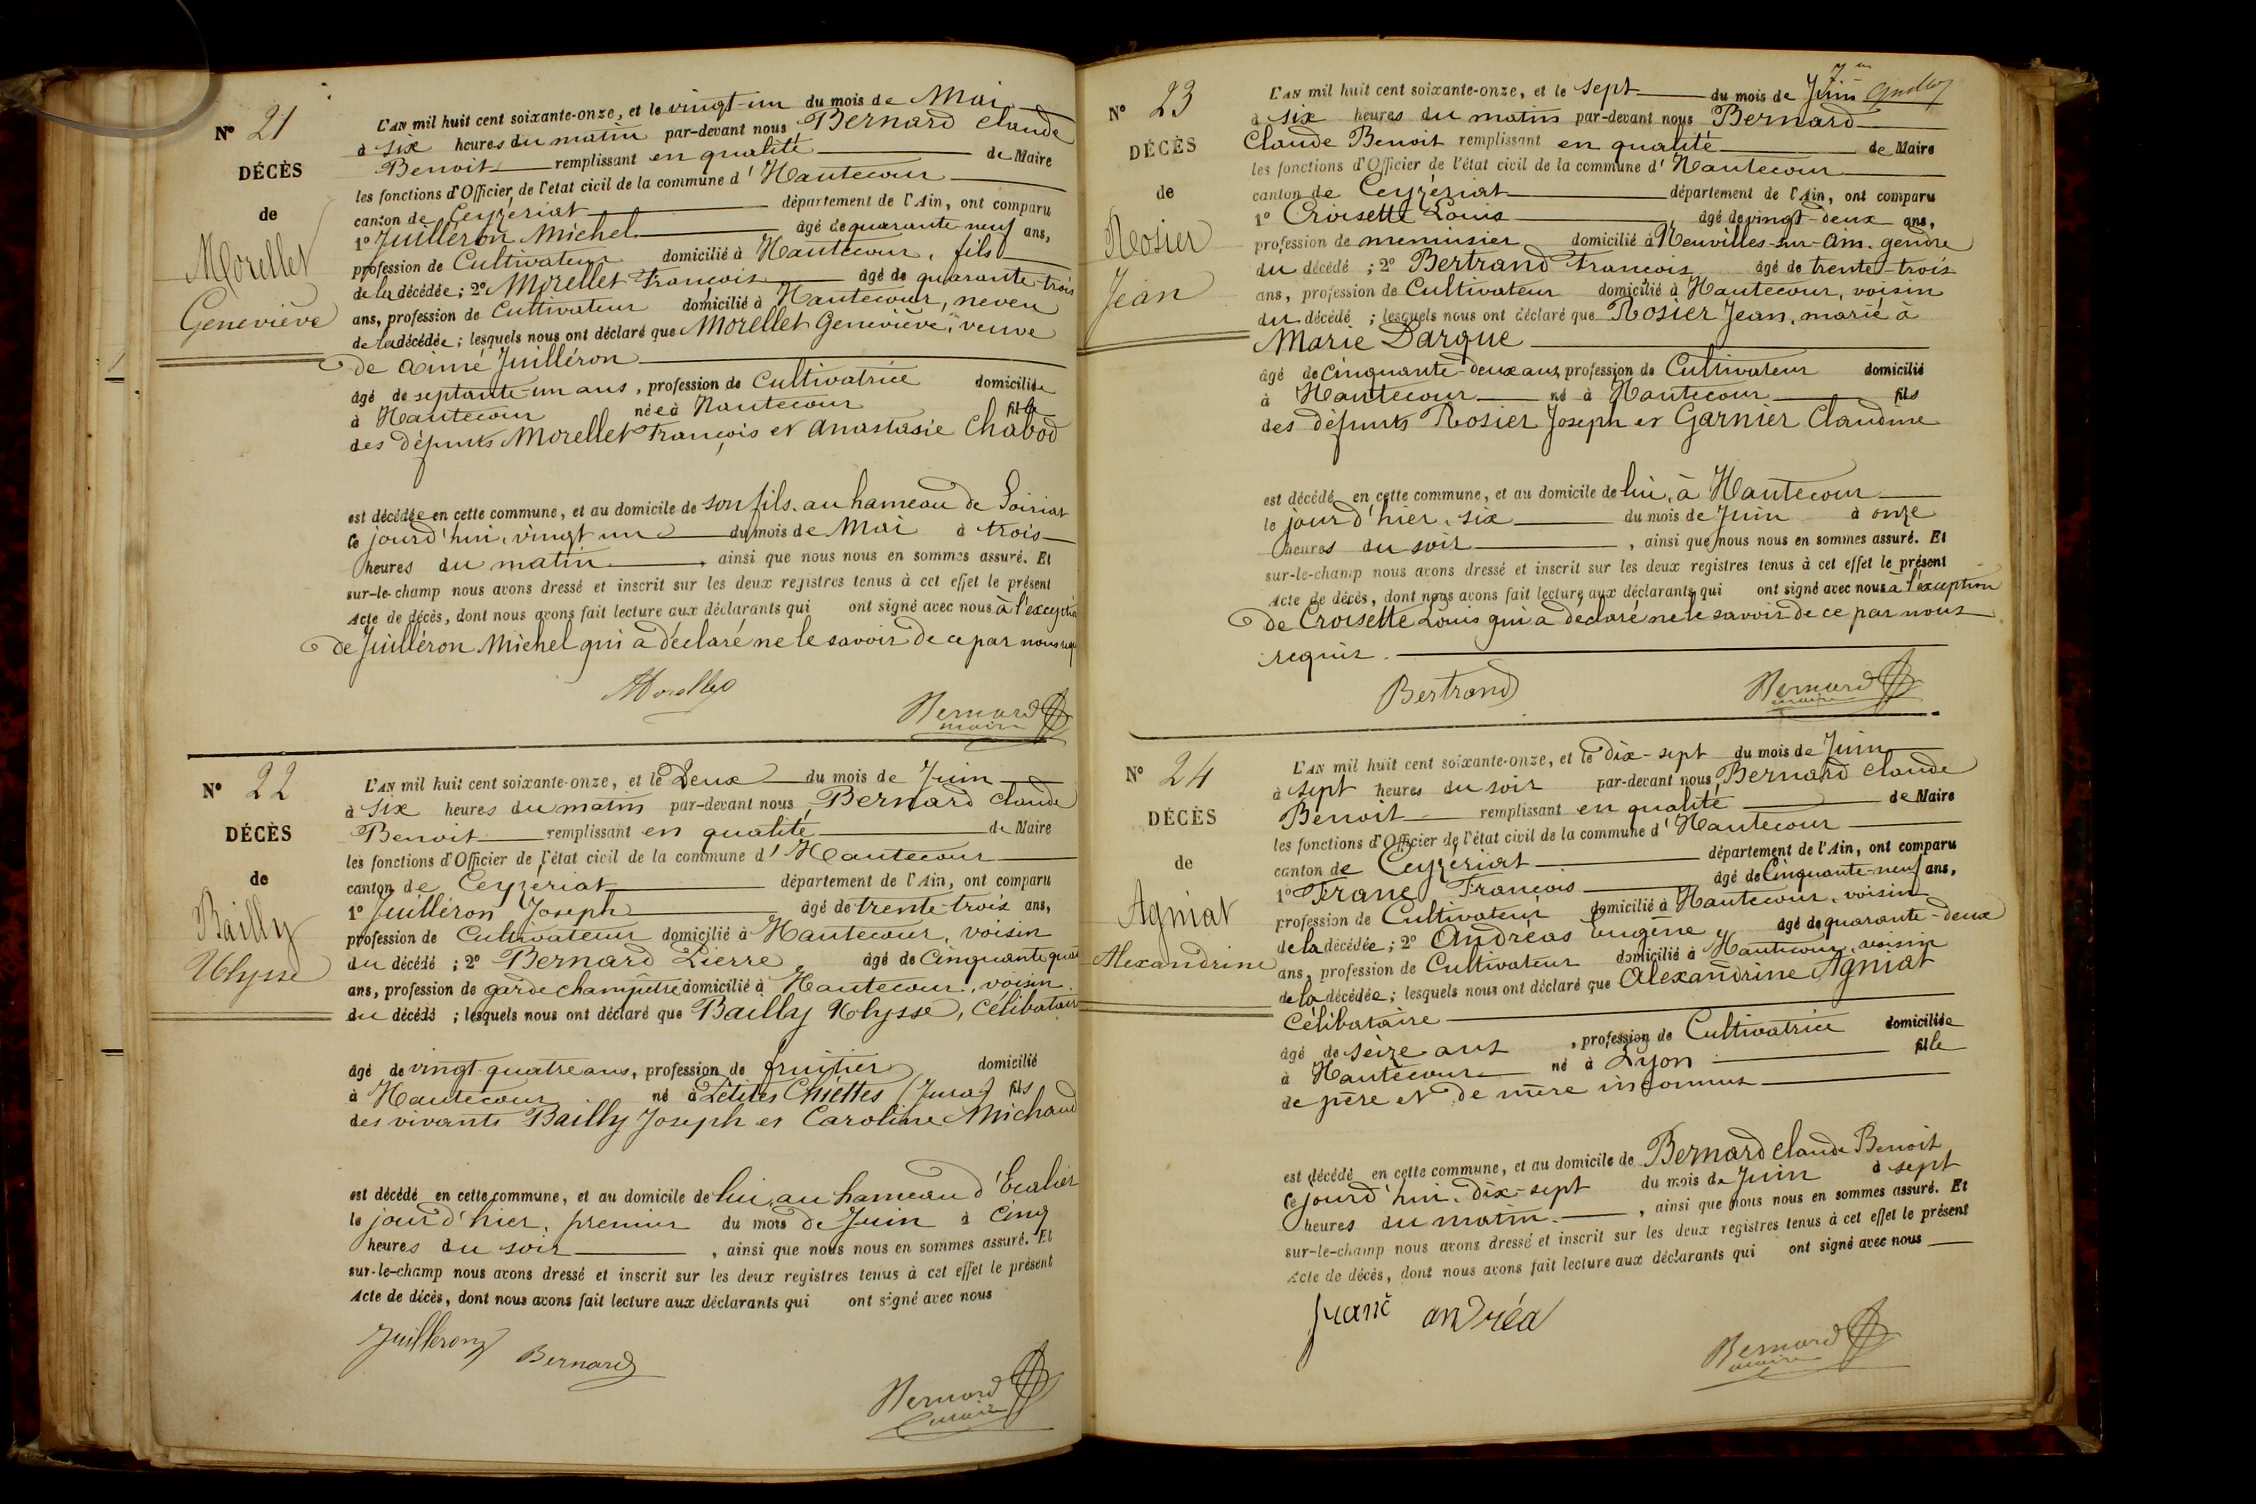 N° 21
DÉCÈS
de
Morellet
Geneviève
L'AN mil huit cent soixante-onze, et le vingt-un du mois de Mai
à six heures du matin par-devant nous Bernard Claude
Benoit remplissant en qualité de Maire
les fonctions d'Officier de l'état civil de la commune d'Hautecour
canton de Ceyzériat département de l'Ain, ont comparu
1° Juilléron Michel âgé de quarante-neuf ans,
profession de Cultivateur domicilié à Hautecour, fils
de la décédée ; 2° Morellet François âgé de quarante-trois
ans, profession de Cultivateur domicilié à Hautecour, neveu
de la décédée ; lesquels nous ont déclaré que Morellet Geneviève, veuve
de Aimé Juilléron
âgé de septante-un ans, profession de Cultivatrice domiciliée
à Hautecour née à Hautecour fille
des défunts Morellet François et Anastasie Chabod
est décédée en cette commune, et au domicile de son fils, au hameau de Soiriat
ce jourd'hui, vingt un du mois de Mai à trois
heures du matin, ainsi que nous nous en sommes assuré. Et
sur-le-champ nous avons dressé et inscrit sur les deux registres tenus à cet effet le présent
Acte de décès, dont nous avons fait lecture aux déclarants qui ont signé avec nous à l'exception
de Juilléron Michel qui a déclaré ne le savoir de ce par nous
Morellet
Bernard
maire
N° 22
DÉCÈS
de
Bailly
Ulysse
L'AN mil huit cent soixante-onze, et le Deux du mois de Juin
à six heures du matin par-devant nous Bernard Claude
Benoit remplissant en qualité de Maire
les fonctions d'Officier de l'état civil de la commune d'Hautecour
canton de Ceyzériat département de l'Ain, ont comparu
1° Juilléron Joseph âgé de trente-trois ans,
profession de Cultivateur domicilié à Hautecour, voisin
du décédé ; 2° Bernard Pierre âgé de Cinquante quatre
ans, profession de garde champêtre domicilié à Hautecour, voisin
du décédé ; lesquels nous ont déclaré que Bailly Ulysse, Célibataire
âgé de vingt-quatre ans, profession de fruitier domicilié
à Hautecour né à Petites Chiettes (Jura) fils
des vivants Bailly Joseph et Caroline Michaud
est décédé en cette commune, et au domicile de lui, au hameau d'
le jour d'hier, premier du mois de Juin à Cinq
heures du soir, ainsi que nous nous en sommes assuré. Et
sur-le-champ nous avons dressé et inscrit sur les deux registres tenus à cet effet le présent
Acte de décès, dont nous avons fait lecture aux déclarants qui ont signé avec nous
Juilleron Bernard
Bernard
maire
N° 23
DÉCÈS
de
Rosier
Jean
L'AN mil huit cent soixante-onze, et le sept du mois de Juin
à six heures du matin par-devant nous Bernard
Claude Benoit remplissant en qualité de Maire
les fonctions d'Officier de l'état civil de la commune d'Hautecour
canton de Ceyzériat département de l'Ain, ont comparu
1° Croisette Louis, âgé de vingt-deux ans,
profession de menuisier domicilié à Neuvilles-sur-Ain, gendre
du décédé ; 2° Bertrand François âgé de trente-trois
ans, profession de Cultivateur domicilié à Hautecour, voisin
du décédé ; lesquels nous ont déclaré que Rosier Jean, marié à
Marie Darque
âgé de Cinquante-deux ans, profession de Cultivateur domicilié
à Hautecour né à Hautecour fils
des défunts Rosier Joseph et Garnier Claudine
est décédé en cette commune, et au domicile de lui, à Hautecour
le jour d'hier, six du mois de Juin à onze
heures du soir, ainsi que nous nous en sommes assuré. Et
sur-le-champ nous avons dressé et inscrit sur les deux registres tenus à cet effet le présent
Acte de décès, dont nous avons fait lecture aux déclarants qui ont signé avec nous à l'exception
de Croisette Louis qui a déclaré ne le savoir de ce par nous
requis.
Bertrand
Bernard
maire
N° 24
DÉCÈS
de
Agniat
Alexandrine
L'AN mil huit cent soixante-onze, et le dix-sept du mois de Juin
à sept heures du soir par-devant nous Bernard Claude
Benoit remplissant en qualité de Maire
les fonctions d'Officier de l'état civil de la commune d'Hautecour
canton de Ceyzériat département de l'Ain, ont comparu
1° Franc François âgé de Cinquante-neuf ans,
profession de Cultivateur domicilié à Hautecour, voisin
de la décédée ; 2° Andréas Eugène âgé de quarante-deux
ans, profession de Cultivateur domicilié à Hautecour, voisin
de la décédée ; lesquels nous ont déclaré que Alexandrine Agniat
Célibataire
âgé de seize ans, profession de Cultivatrice domiciliée
à Hautecour né à Lyon fille
de père et de mère inconnus
est décédé en cette commune, et au domicile de Bernard Claude Benoit
ce jourd'hui, dix-sept du mois de Juin à sept
heures du matin, ainsi que nous nous en sommes assuré. Et
sur-le-champ nous avons dressé et inscrit sur les deux registres tenus à cet effet le présent
Acte de décès, dont nous avons fait lecture aux déclarants qui ont signé avec nous
franc andréa
Bernard
maire